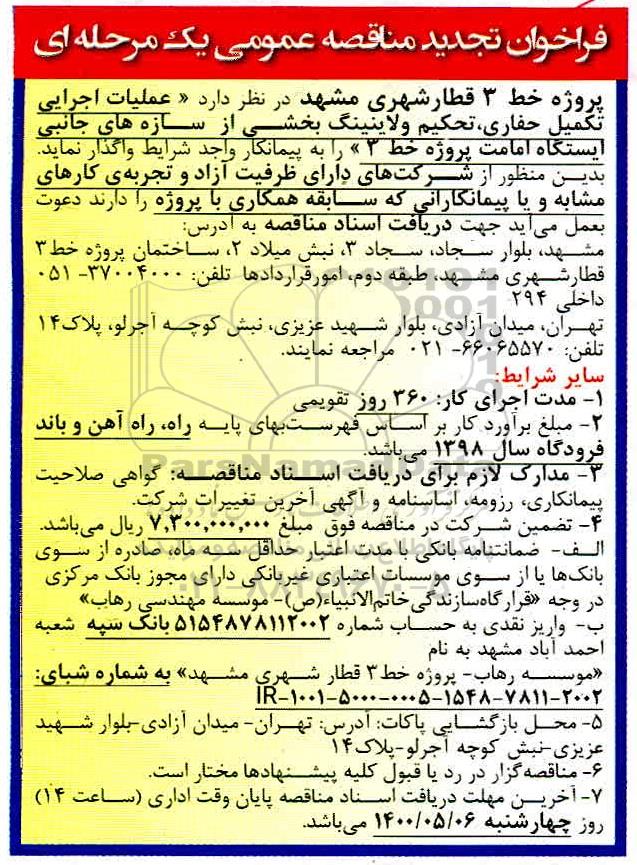 فراخوان تجدید مناقصه عمومی یک مرحله ای
پروژه خط ۳ قطارشهری مشهد در نظر دارد « عملیات اجرایی
تکمیل حفاری،تحکیم ولاینینگ بخشی از سازه های جانبی
ایستگاه امامت پروژه خط ۳ » را به پیمانکار واجد شرایط واگذار نماید.
بدین منظور از شرکت‌های دارای ظرفیت آزاد و تجربه‌ی کارهای
مشابه و یا پیمانکارانی که سابقه همکاری با پروژه را دارند دعوت
بعمل می‌آید جهت دریافت اسناد مناقصه به آدرس:
مشهد، بلوار سجاد، سجاد ۳، نبش میلاد ۲، ساختمان پروژه خط ۳
قطارشهری مشهد، طبقه دوم، امورقراردادها تلفن: ۳۷۰۰۴۰۰۰- ۰۵۱
داخلی ۲۹۴
تهران، میدان آزادی، بلوار شهید عزیزی، نبش کوچه آجرلو، پلاک۱۴
تلفن: ۶۶۰۶۵۵۷۰- ۰۲۱ مراجعه نمایند.
سایر شرایط:
۱- مدت اجرای کار: ۳۶۰ روز تقویمی
۲- مبلغ برآورد کار بر اساس فهرست‌بهای پایه راه، راه آهن و باند
فرودگاه سال ۱۳۹۸ می‌باشد.
۳- مدارک لازم برای دریافت اسناد مناقصه: گواهی صلاحیت
پیمانکاری، رزومه، اساسنامه و آگهی آخرین تغییرات شرکت.
۴- تضمین شرکت در مناقصه فوق مبلغ ۷,۳۰۰,۰۰۰,۰۰۰ ریال می‌باشد.
الف- ضمانتنامه بانکی با مدت اعتبار حداقل سه ماه، صادره از سوی
بانک‌ها یا از سوی موسسات اعتباری غیربانکی دارای مجوز بانک مرکزی
در وجه «قرارگاه‌سازندگی‌خاتم‌الانبیاء(ص)- موسسه مهندسی رهاب»
ب- واریز نقدی به حساب شماره ۵۱۵۴۸۷۸۱۱۲۰۰۲ بانک سپه شعبه
احمد آباد مشهد به نام
«موسسه رهاب- پروژه خط ۳ قطار شهری مشهد» به شماره شبای:
IR-۱۰۰۱-۵۰۰۰-۰۰۰۵-۱۵۴۸-۷۸۱۱-۲۰۰۲
۵- محل بازگشایی پاکات: آدرس: تهران- میدان آزادی-بلوار شهید
عزیزی-نبش کوچه آجرلو-پلاک۱۴
۶- مناقصه‌گزار در رد یا قبول کلیه پیشنهادها مختار است.
۷- آخرین مهلت دریافت اسناد مناقصه پایان وقت اداری (ساعت ۱۴)
روز چهارشنبه ۱۴۰۰/۰۵/۰۶ می‌باشد.